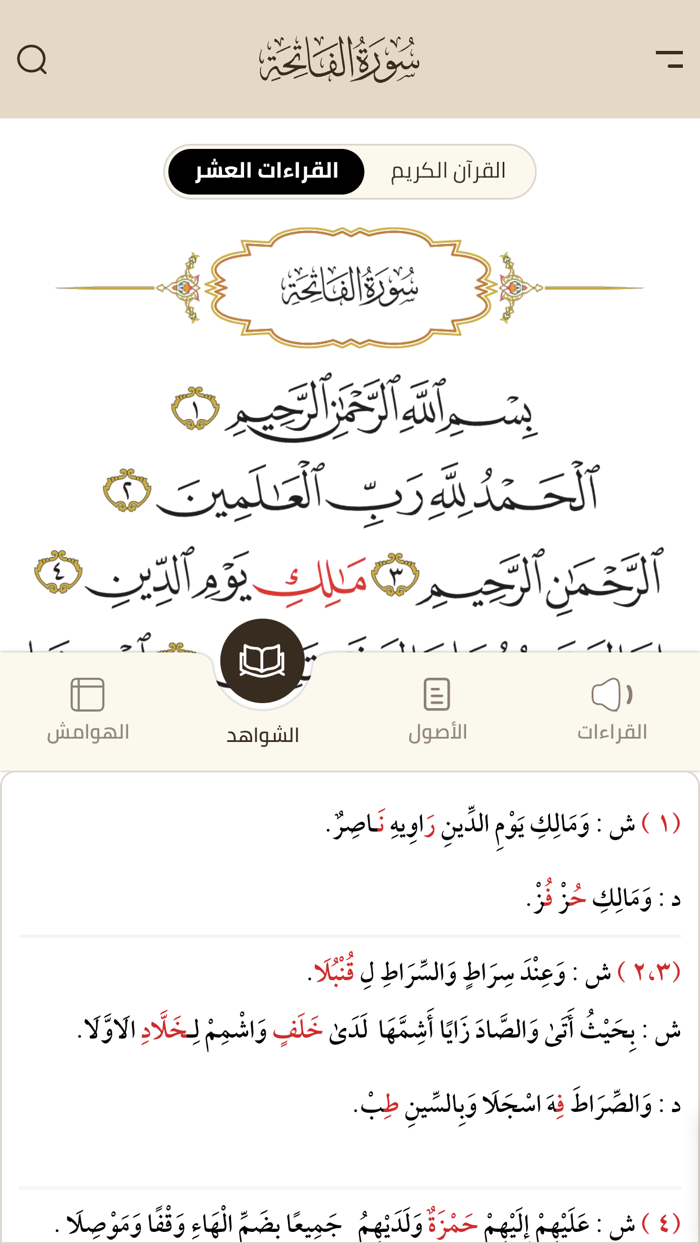 سُورَةُ الفَاتِحَةِ
القرآن الكريم القراءات العشر
سُورَةُ الفَاتِحَةِ
بِسْمِ ٱللَّهِ ٱلرَّحْمَٰنِ ٱلرَّحِيمِ ١
ٱلْحَمْدُ لِلَّهِ رَبِّ ٱلْعَٰلَمِينَ ٢
ٱلرَّحْمَٰنِ ٱلرَّحِيمِ ٣ مَٰلِكِ يَوْمِ ٱلدِّينِ ٤
القراءات الأصول الشواهد الهوامش
(١) ش : وَمَالِكِ يَوْمِ الدِّينِ رَاوِيهِ نَاصِرٌ.
د : وَمَالِكِ حُزْ فُزْ.
(٢،٣) ش : وَعِنْدَ سِرَاطٍ وَالسِّرَاطِ لِ قُنْبُلَا.
ش : بِحَيْثُ أَتَىٰ وَالصَّادَ زَايًا أَشِمَّهَا لَدَىٰ خَلَفٍ وَاشْمِمْ لِخَلَّادِ الَاوَّلَا.
د : وَالصِّرَاطَ فِهَ اسْجَلَا وَبِالسِّينِ طِبْ.
(٤) ش : عَلَيْهِمْ إِلَيْهِمْ حَمْزَةٌ وَلَدَيْهِمُ جَمِيعًا بِضَمِّ الْهَاءِ وَقْفًا وَمَوْصِلَا .